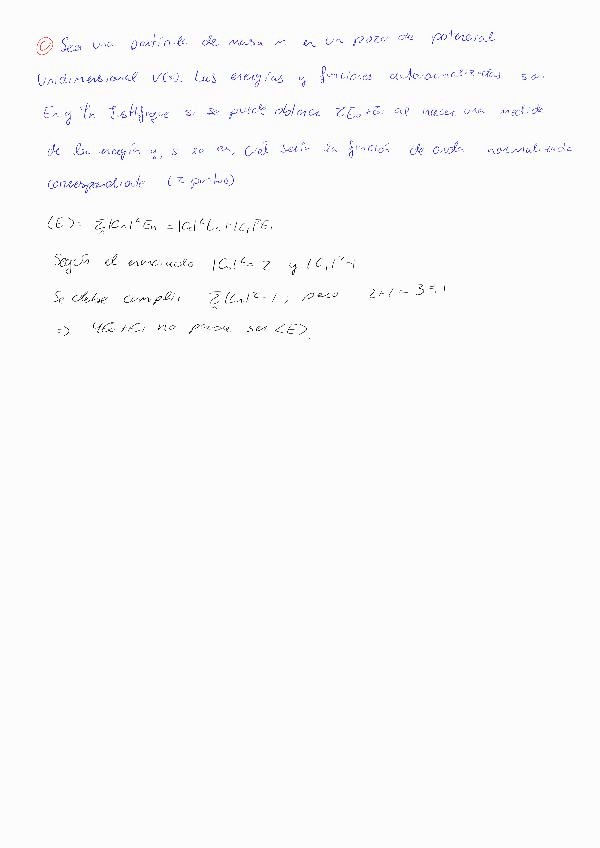 Sea una partícula de masa m en un pozo de potencial
Unidimensional V(x). Las energías y funciones autocaracterizadas son
En y Ψn Justifique si se puede obtener 2E0+E1 al hacer una medida
de la energía y, si es así, cuál sería la función de onda normalizada
correspondiente (2 puntos)
⟨E⟩ = Σn |Cn|² En = |C0|² E0 + |C1|² E1
Según el enunciado |C0|² = 2 y |C1|² = 1
Se debe cumplir Σn |Cn|² = 1, pero 2+1 = 3 ≠ 1
=> no puede ser ⟨E⟩.